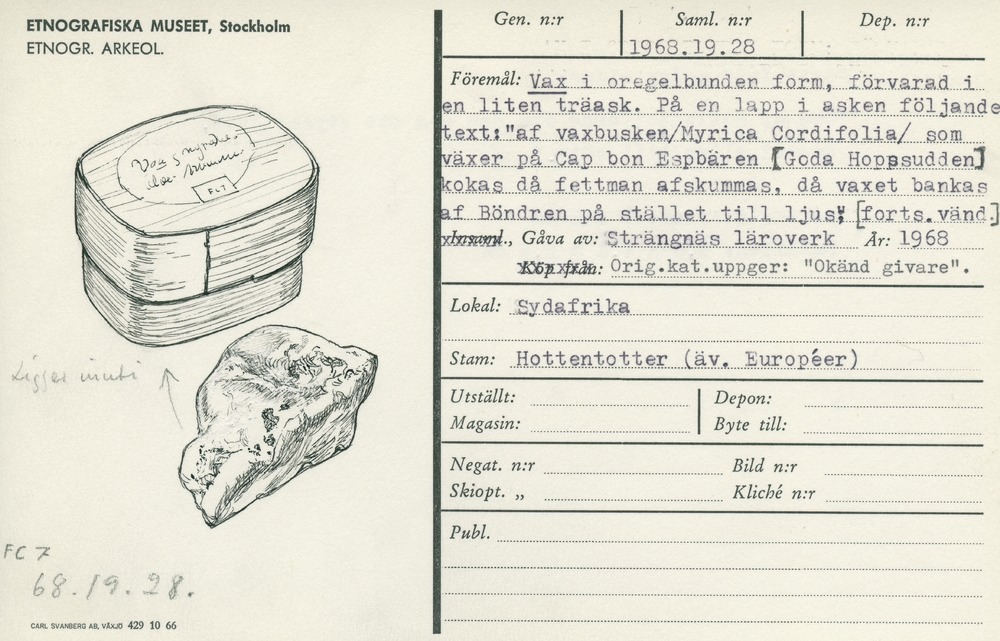 ETNOGRAFISKA MUSEET, Stockholm
ETNOGR. ARKEOL.
FC7
Ligger inuti
FC 7
68.19.28.
CARL SVANBERG AB, VÄXJÖ 429 10 66
Gen. n:r Saml. n:r Dep. n:r
1968.19.28
Föremål: Vax i oregelbunden form, förvarad i
en liten träask. På en lapp i asken följande
text:"af vaxbusken/Myrica Cordifolia/ som
växer på Cap bon Espbären [Goda Hoppsudden]
kokas då fettman afskummas, då vaxet bankas
af Böndren på stället till ljus" [forts.vänd.]
Insaml., Gåva av: Strängnäs läroverk År: 1968
Köp från: Orig.kat.uppger: "Okänd givare".
Lokal: Sydafrika
Stam: Hottentotter (äv. Européer)
Utställt: Depon:
Magasin: Byte till:
Negat. n:r Bild n:r
Skiopt. „ Kliché n:r
Publ.